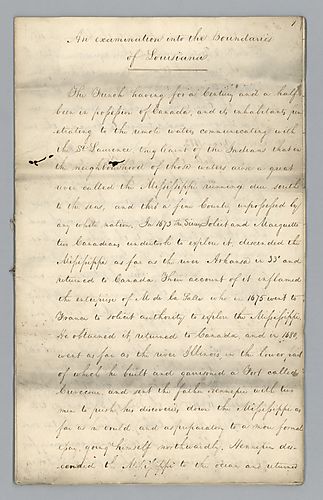 1
An examination into the Boundaries
of Louisiana
The French having for a Century and a half
been in possession of Canada, and its inhabitants, pene
trating to the remote waters communicating with
the St Lawrence, they learnt of the Indians that in
the neighbourhood of those waters arose a great
river called the Missisippi running due south
to the sea, and that a fine Country, unpossessed by
any white nation. In 1673 the Sieurs Joliet and Marquette
two Canadians undertook to explore it, descended the
Missisippi as far as the river Arkansa in 33° and
returned to Canada. Their account of it inflamed
the enterprise of M de La Salle who in 1675 went to
France to solicit authority to explore the Missisippi,
he obtained it returned to Canada, and in 1680,
went as far as the river Illinois, in the lower part
of which he built and garrisoned a Fort called
Crevecoeur, and sent the father Hennepin with two
men to push his discoveries, down the Missisippi as
far as he could. and as preparation to a more formal
essay, going himself northwardly, Hennepin des-
cended the Missisippi to the ocean and returned